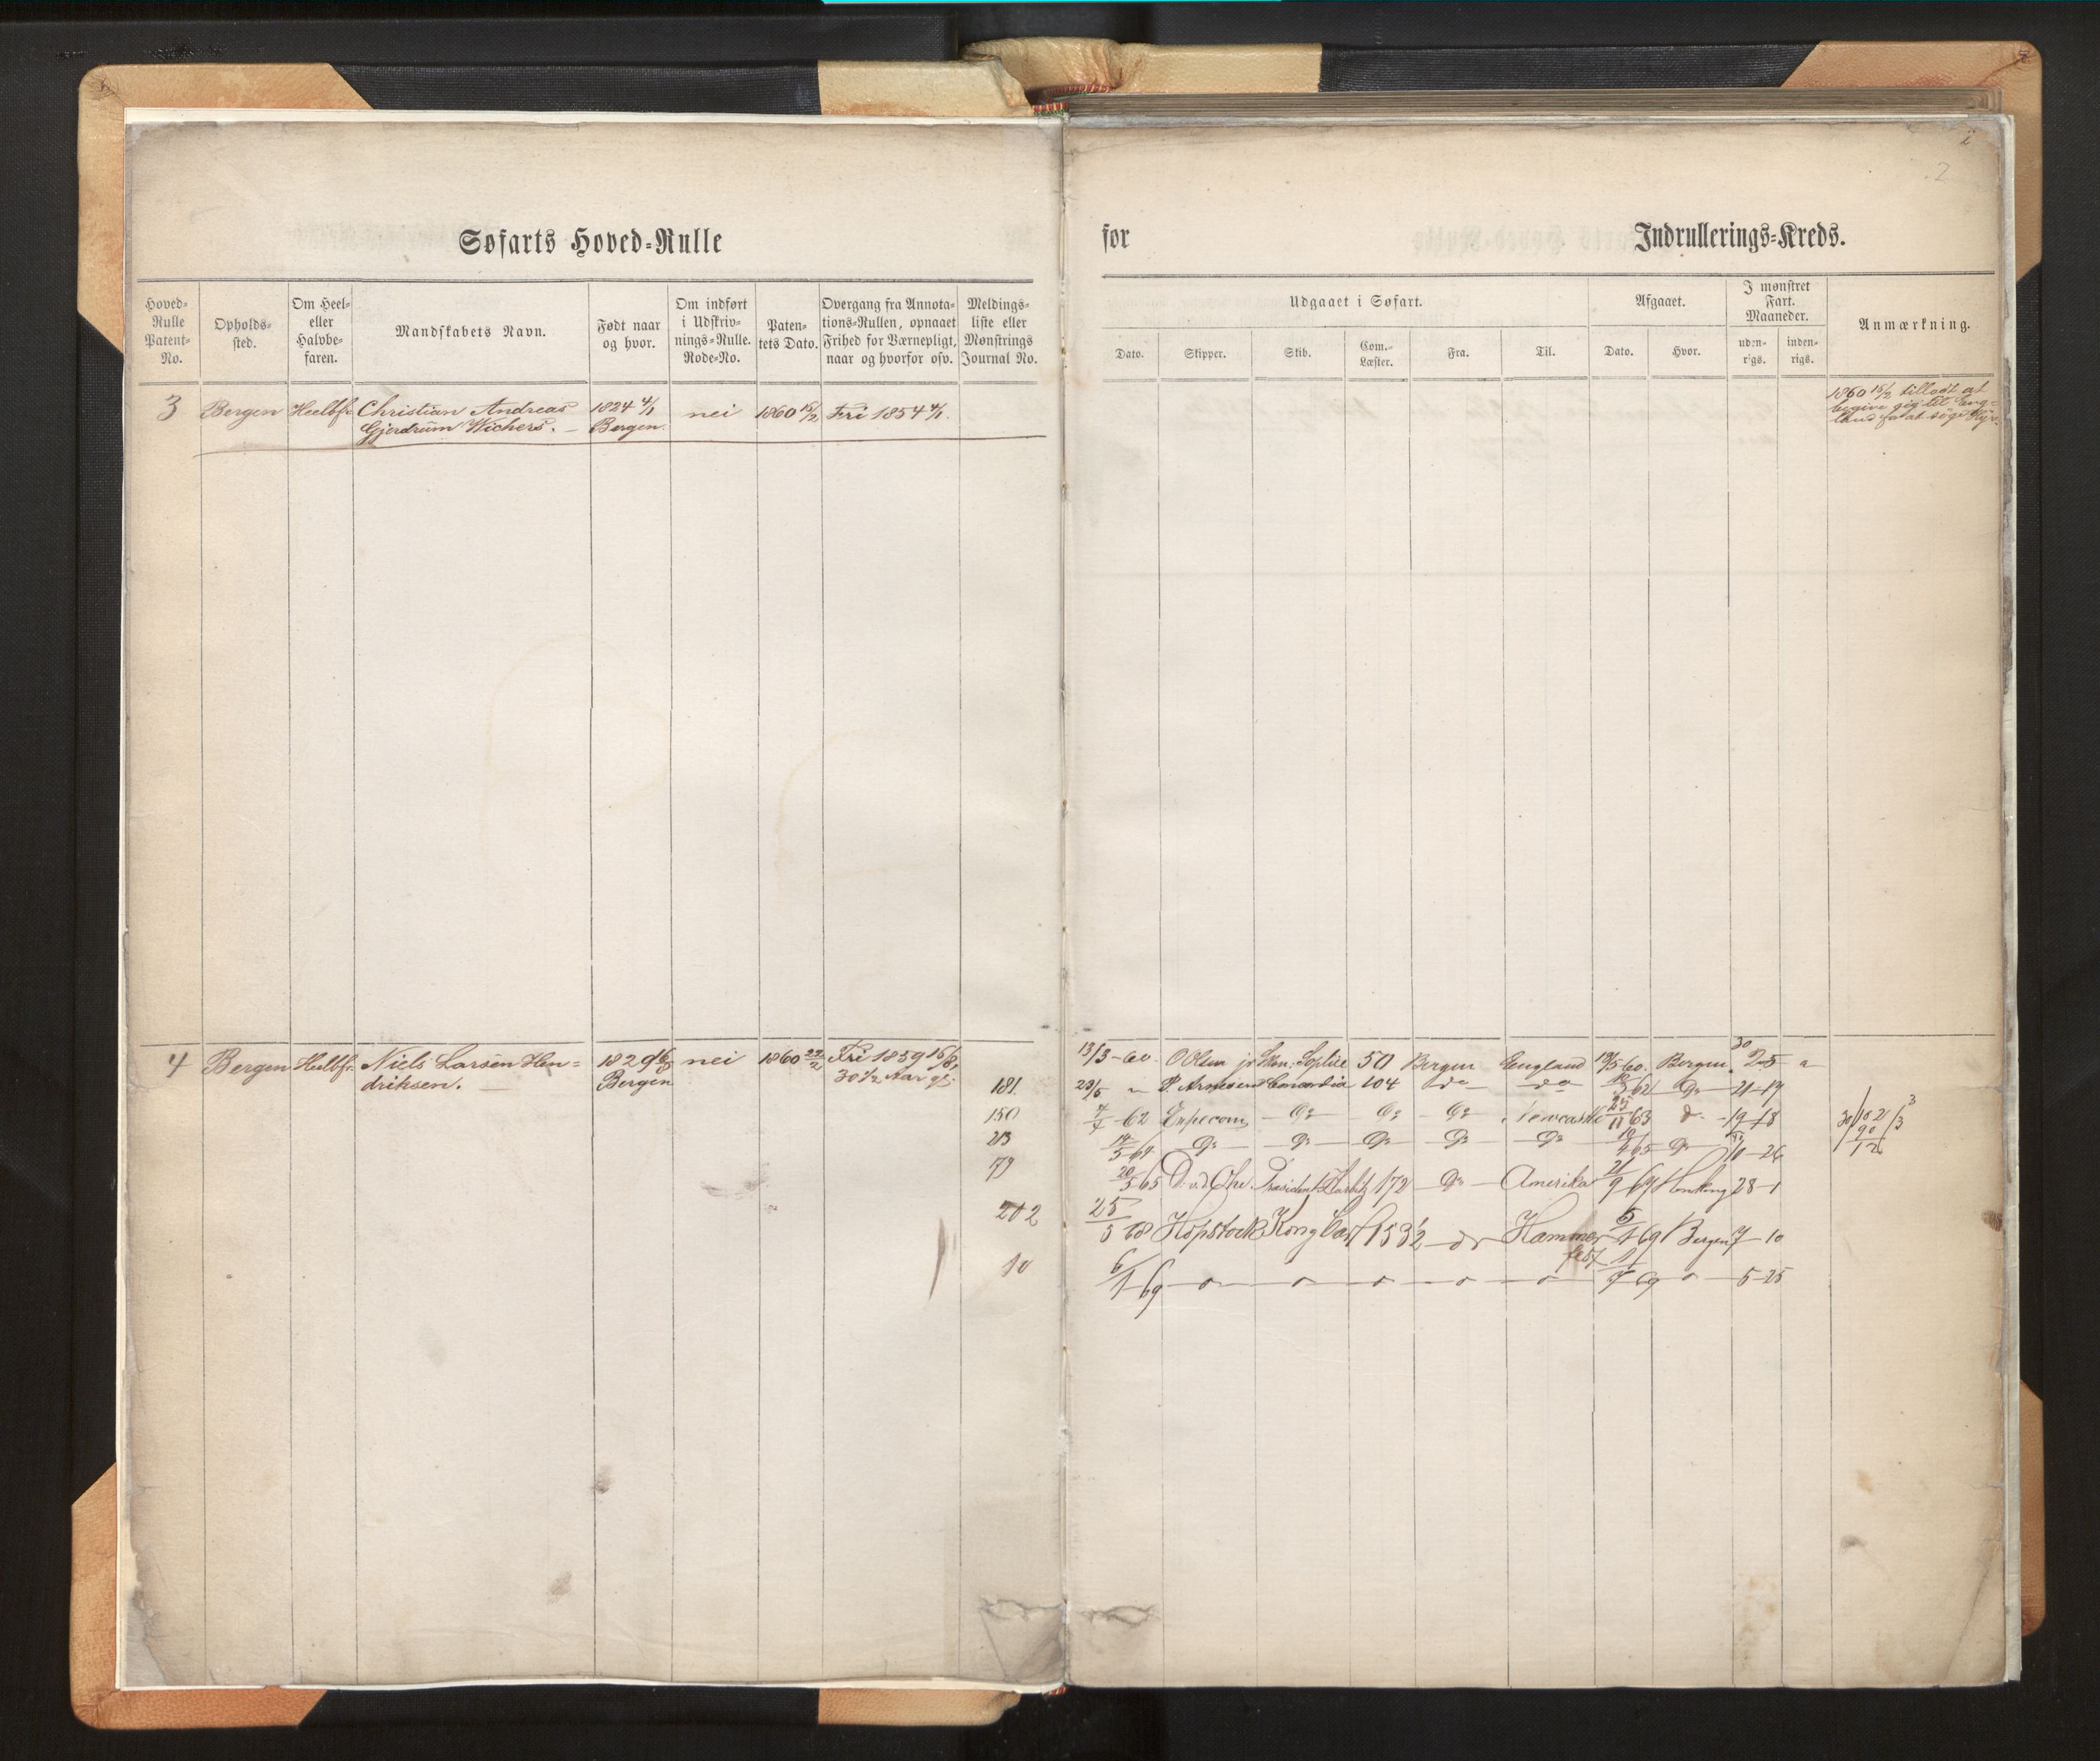 2
2
Søfarts Hoved-Rulle for Indrullerings-Kreds.
Hoved-Rulle Patent-No.
Opholds-sted.
Om Heel- eller Halvbe-faren.
Mandskabets Navn.
Født naar og hvor.
Om indført i Udskriv-nings-Rulle. Rode-No.
Paten-tets Dato.
Overgang fra Annota-tions-Rullen, opnaaet Frihed for Værnepligt, naar og hvorfor osv.
Meldings-liste eller Mønstrings Journal No.
Udgaaet i Søfart.
Dato. Skipper. Skib. Com.-Læster. Fra. Til.
Afgaaet.
Dato. Hvor.
I mønstret Fart. Maaneder.
uden-rigs. inden-rigs.
Anmærkning.
3 Bergen Heelbf. Christian Andreas 1824 4/1 nei 1860 15/2 Fri 1854 4/1.
Gjerdrum Wichers. Bergen.
1860 15/2 tilladt at
begive sig til Eng-
land for at søge Hyre
4 Bergen Heelbf. Niels Larsen Hen- 1829 16/8 nei 1860 22/2 Fri 1859 16/8
driksen. Bergen 30 1/2 Aar gl.
13/3-60. O Olsen jr Sophie 50 Bergen England 60. Bergen.
181. 23/5 P. Arnesen Concordia 104 do do 62 Do 21-19
150 7/7 62 Do Do Do Newcastle 25/11 63 d 19-18
213 64 Do Do Do Do Do 65 Do 10-26
79 20/5 65 Præsident Harbitz 172 Do Amerika 21/9 69 28-1
202 25/5 68 Hopstock Kong Carl 153 1/2 do Hammer- 5/1 69 Bergen 7-10
fest
10 6/1 69 5-25